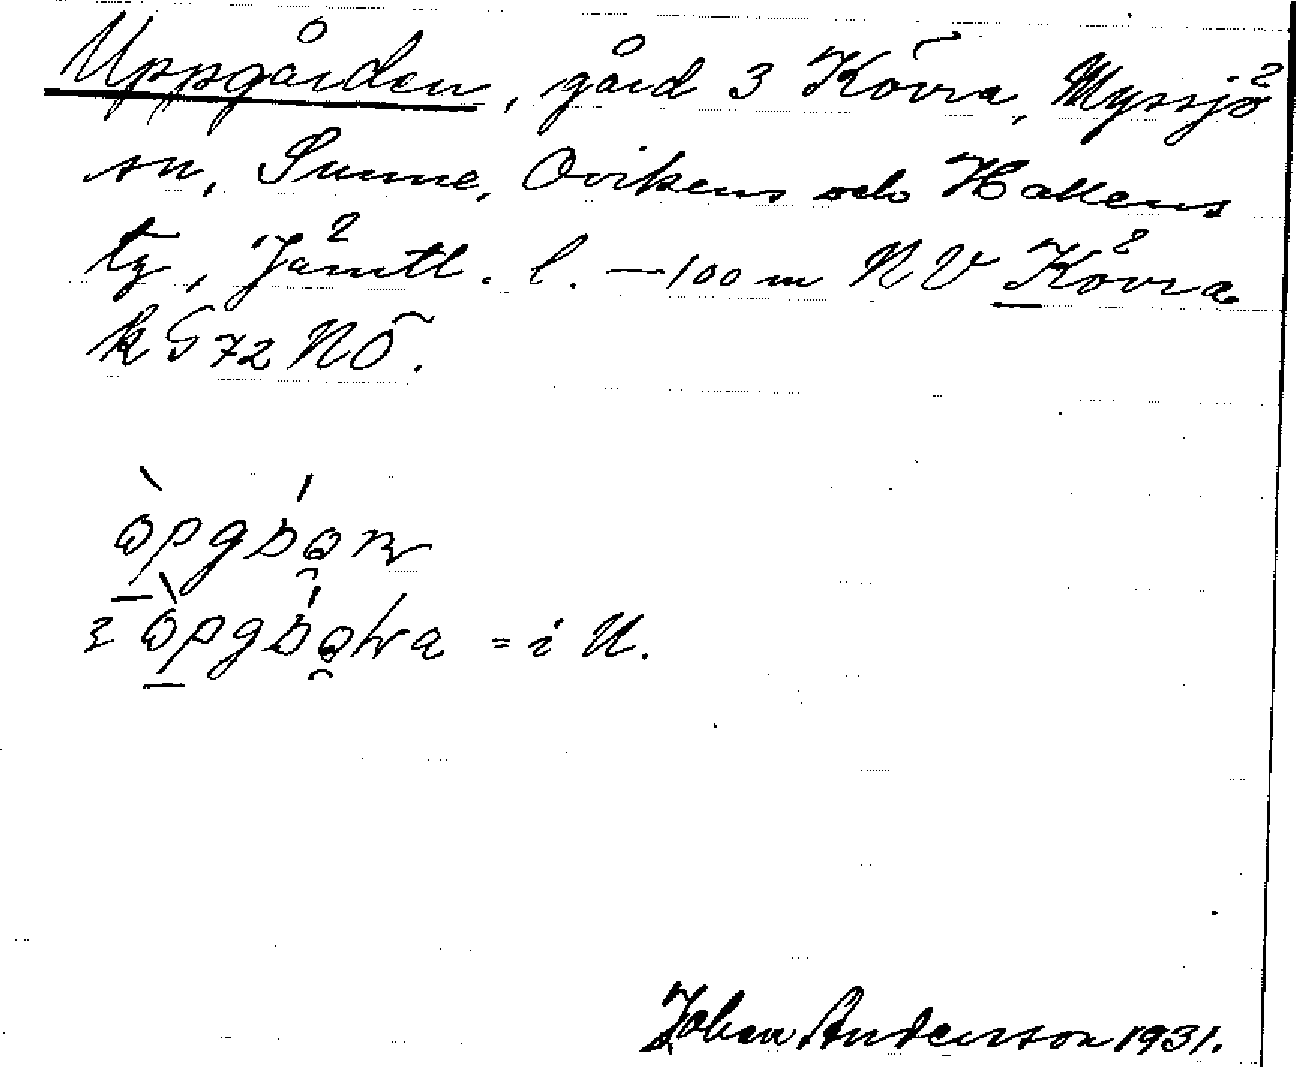 Uppgården, gård 3 Kövra, Myssjö
sn, Sunne, Ovikens och Hallens
tg, Jämtl. l. — 100 m NV Kövra
k G 72 NÖ.
= i U.
Johan Anderson 1931.